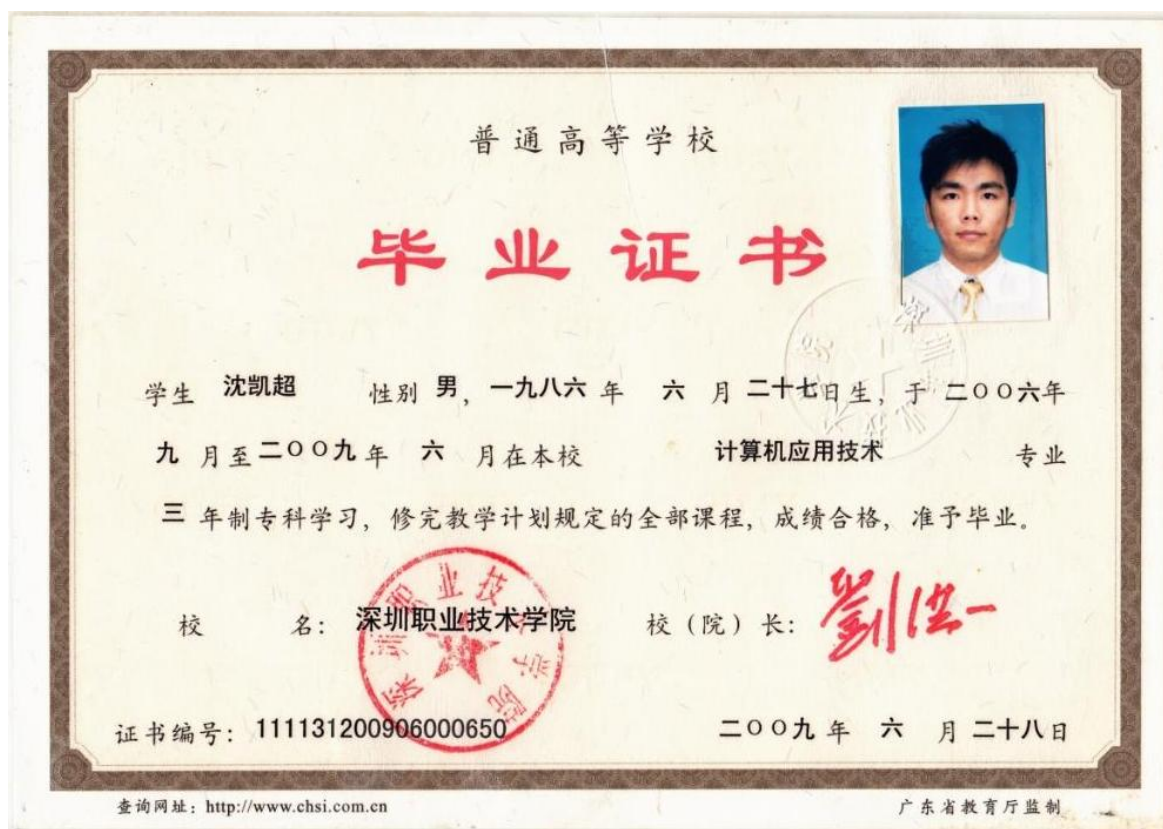 普通高等学校
毕业证书
学生 沈凯超 性别 男，一九八六年 六 月二十七日生，于 二〇〇六年
九 月至二〇〇九年 六 月在本校 计算机应用技术 专业
三 年制专科学习，修完教学计划规定的全部课程，成绩合格，准予毕业。
校 名：深圳职业技术学院 校（院）长：劉洪一
深圳职业技术学院
证书编号：111131200906000650 二〇〇九年 六 月二十八日
查询网址：http://www.chsi.com.cn 广东省教育厅监制